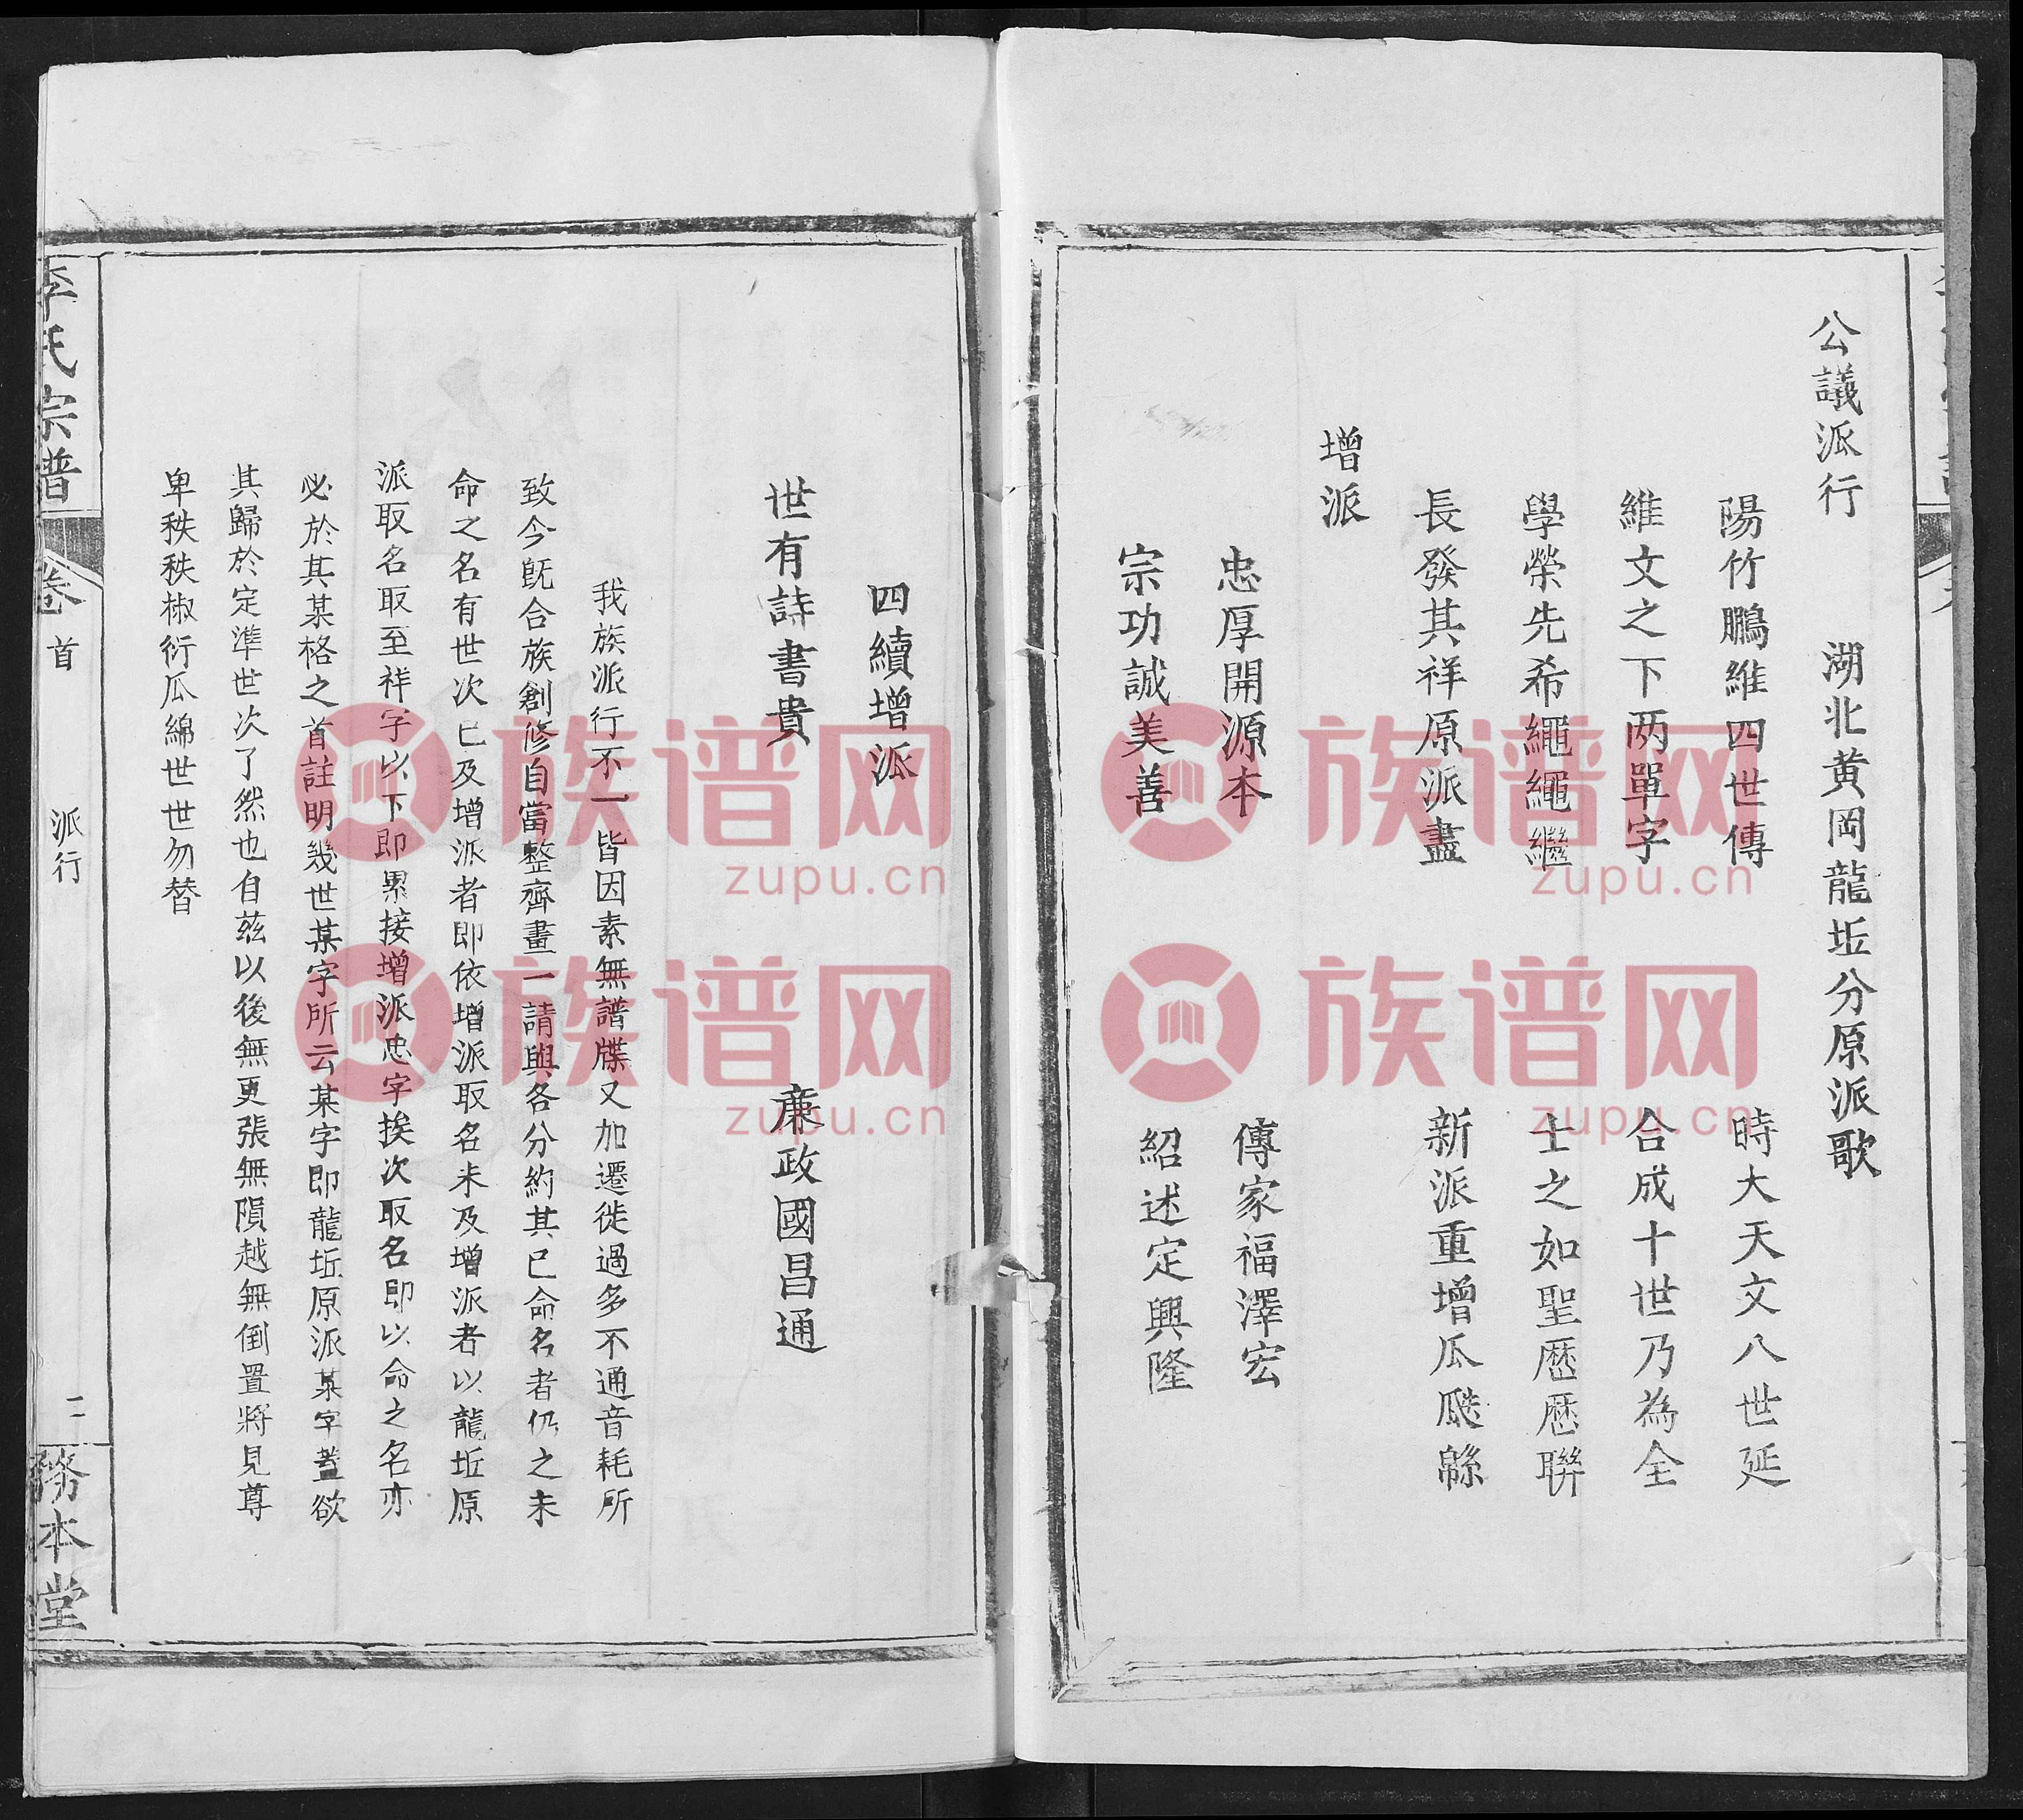 公議派行　湖北黄岡龍坵分原派歌
陽竹鵬維四世傳　時大天文八世延
維文之下两單字　合成十世乃為全
學榮先希繩繩繼　士之如聖歷歷聨
長發其祥原派盡　新派重增瓜瓞緜
增派
忠厚開源本　傳家福澤宏
宗功誠美善　紹述定興隆
四續增派
世有詩書貴　廉政國昌通
我族派行不一皆因素無譜牒又加遷徙過多不通音耗所
致今既合族創修自當整齊畫一請與各分約其已命名者仍之未
命之名有世次已及增派者即依增派取名未及增派者以龍坵原
派取名取至祥字以下即累接增派忠字挨次取名即以命之名亦
必於其某格之首註明幾世某字所云某字即龍坵原派某字蓋欲
其歸於定準世次了然也自茲以後無更張無隕越無倒置將見尊
卑秩秩椒衍瓜綿世世勿替
李氏宗譜
卷首
派行
二
務本堂
族谱网
zupu.cn
族谱网
zupu.cn
族谱网
zupu.cn
族谱网
zupu.cn